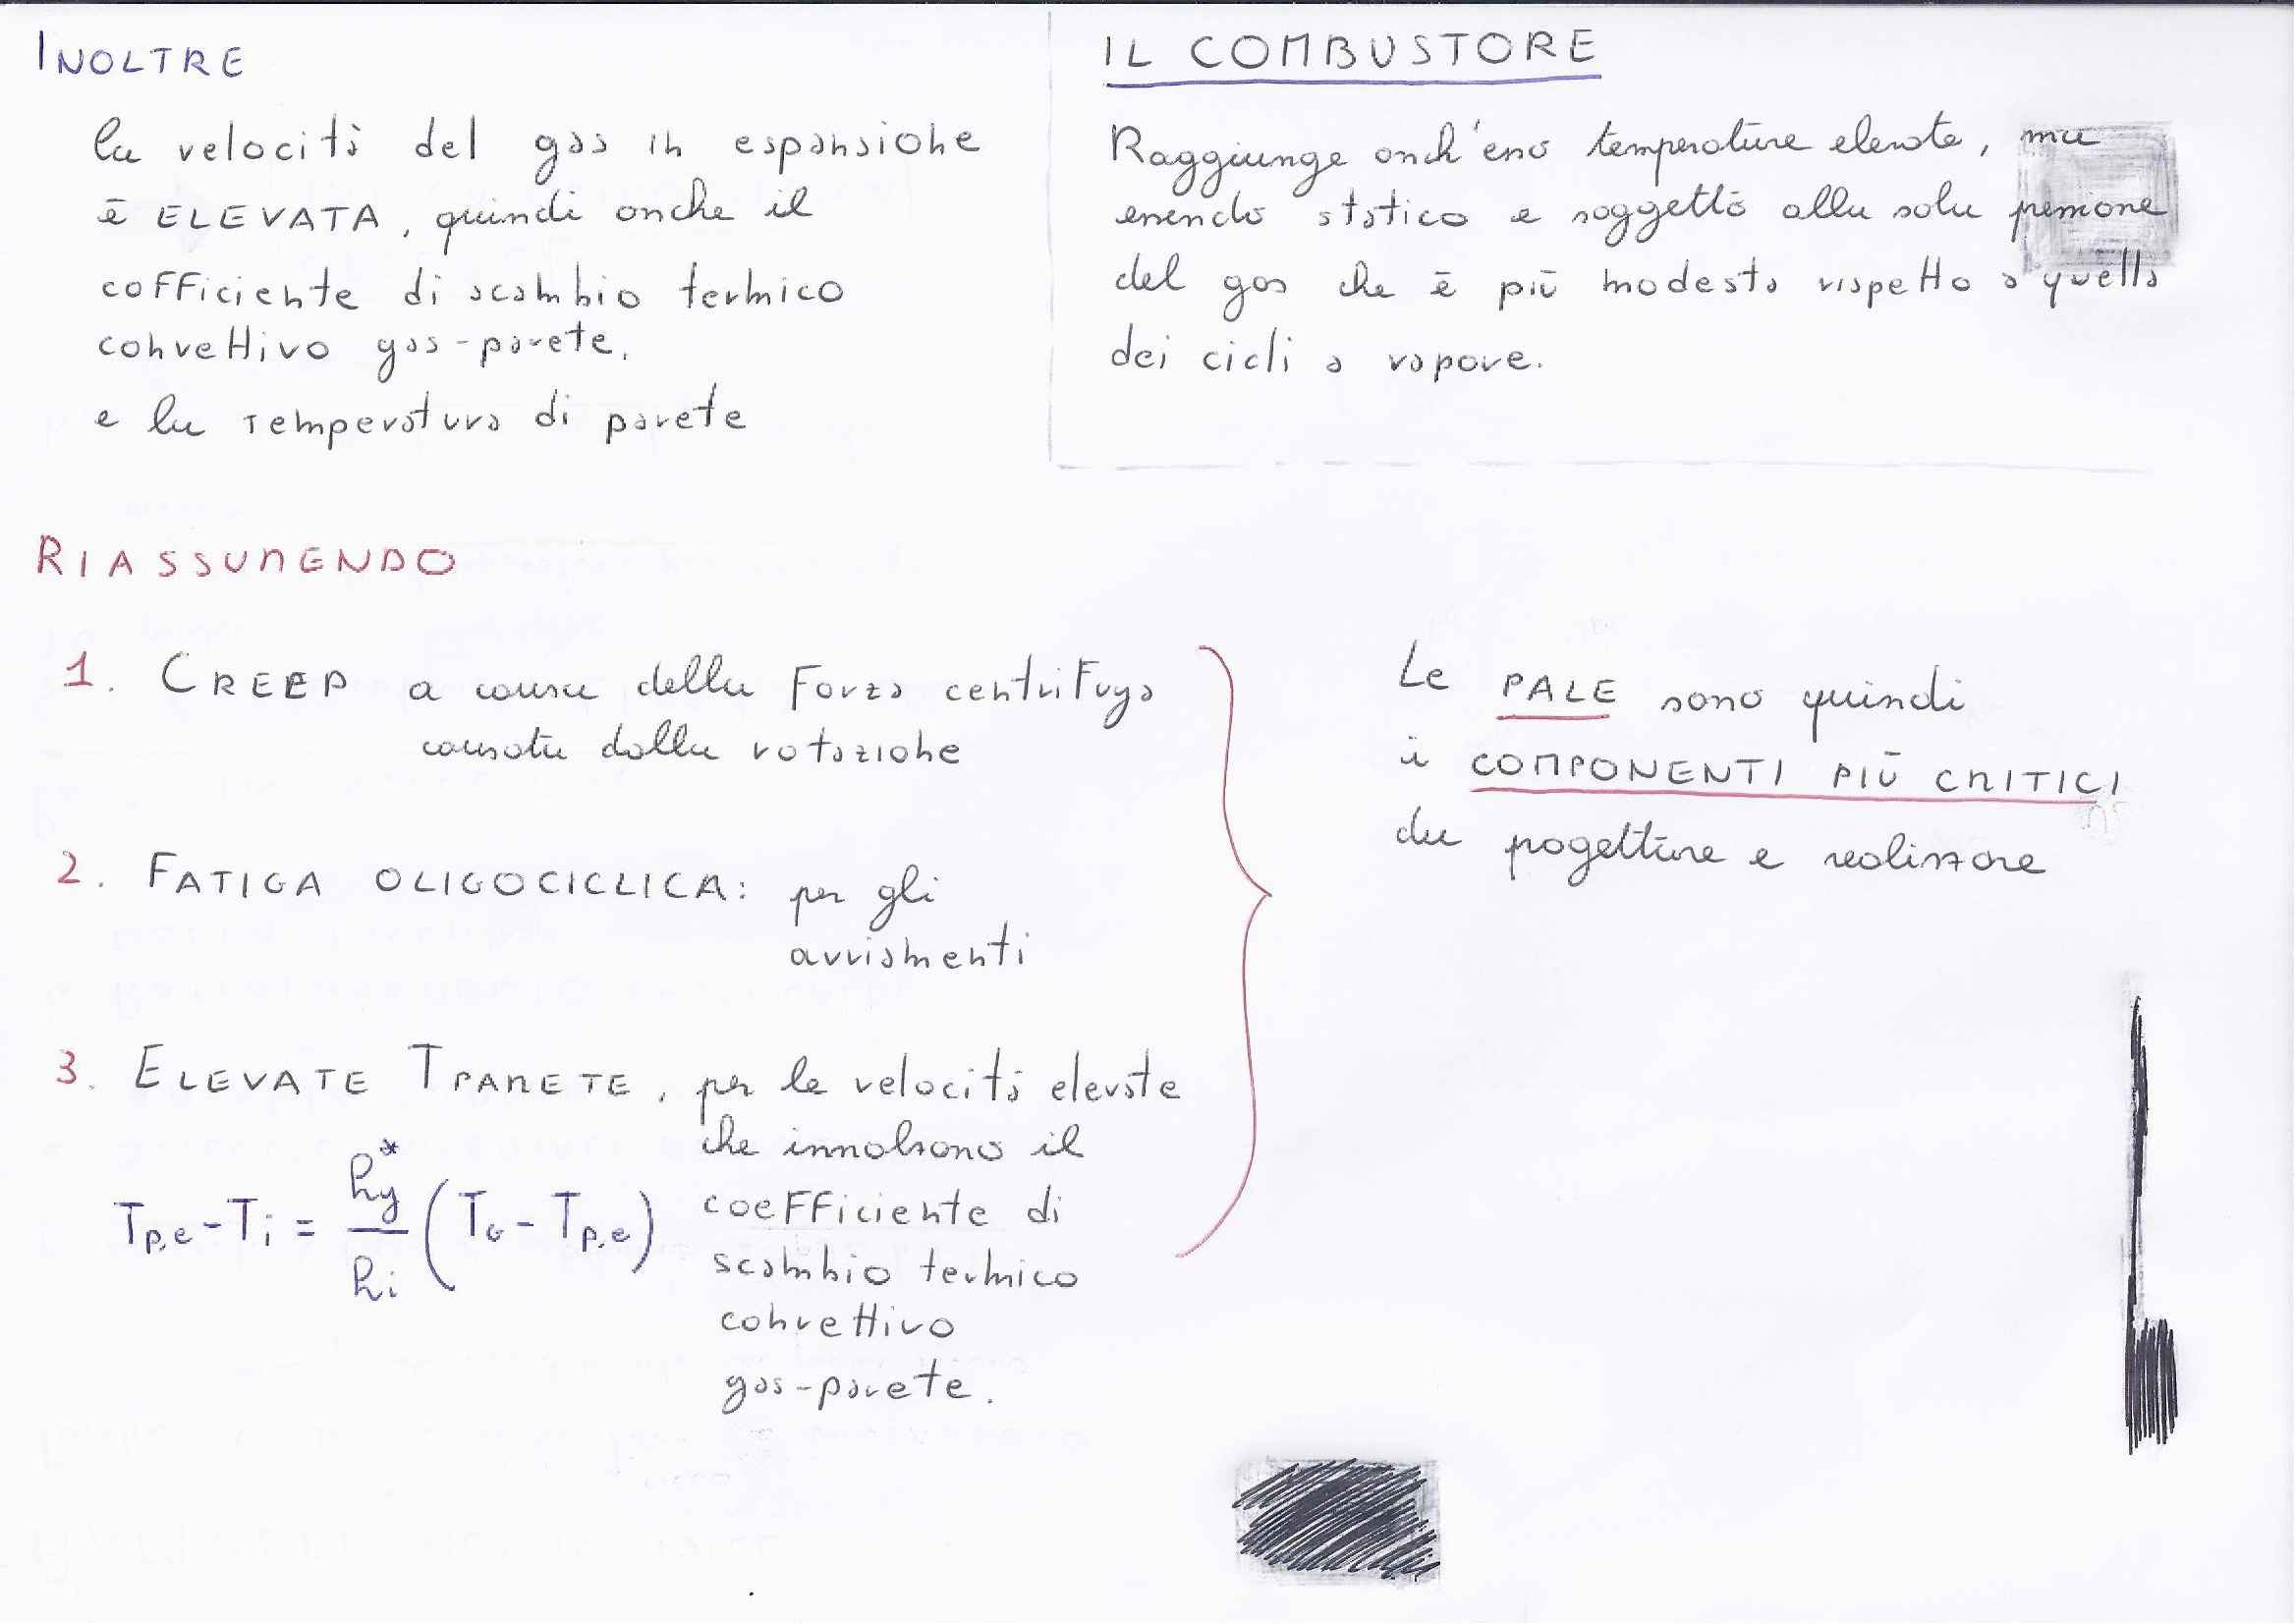 INOLTRE
la velocità del gas in espansione
è ELEVATA, quindi anche il
cofficiente di scambio termico
convettivo gas-parete.
e la temperatura di parete
IL COMBUSTORE
Raggiunge anch'esso temperature elevate, ma
essendo statico e soggetto alla sola pressione
del gas che è più modesta rispetto a quella
dei cicli a vapore.
RIASSUMENDO
1. CREEP a causa della forza centrifuga
causata dalla rotazione
2. FATIGA OLIGOCICLICA: per gli
avviamenti
3. ELEVATE TPARETE, per le velocità elevate
che innalzano il
coefficiente di
scambio termico
convettivo
gas-parete.
Tp,e - Ti = hg*/hi (TG - Tp,e)
Le PALE sono quindi
i COMPONENTI PIÙ CRITICI
da pogettare e realizzare